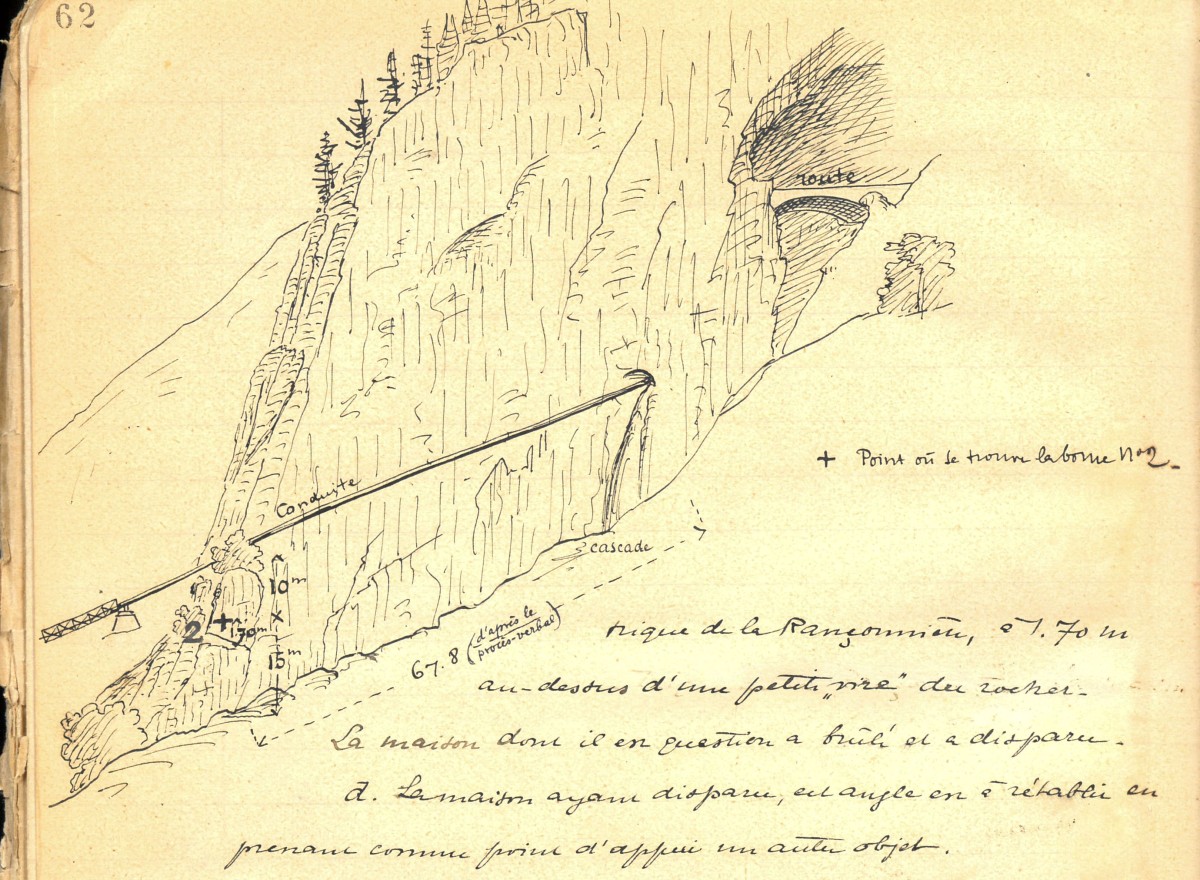 62
route
+ Point où se trouve la borne No 2.
Conduite
cascade
10m
2
+
1.70m
15m
67.8 (d'après le procès-verbal)
trique de la Rançonnière, à 1.70 m
au-dessus d'une petite „vire” du rocher.
La maison dont il est question a brûlé et a disparu.
d. La maison ayant disparu, cet angle est à rétablir en
prenant comme point d'appui un autre objet.